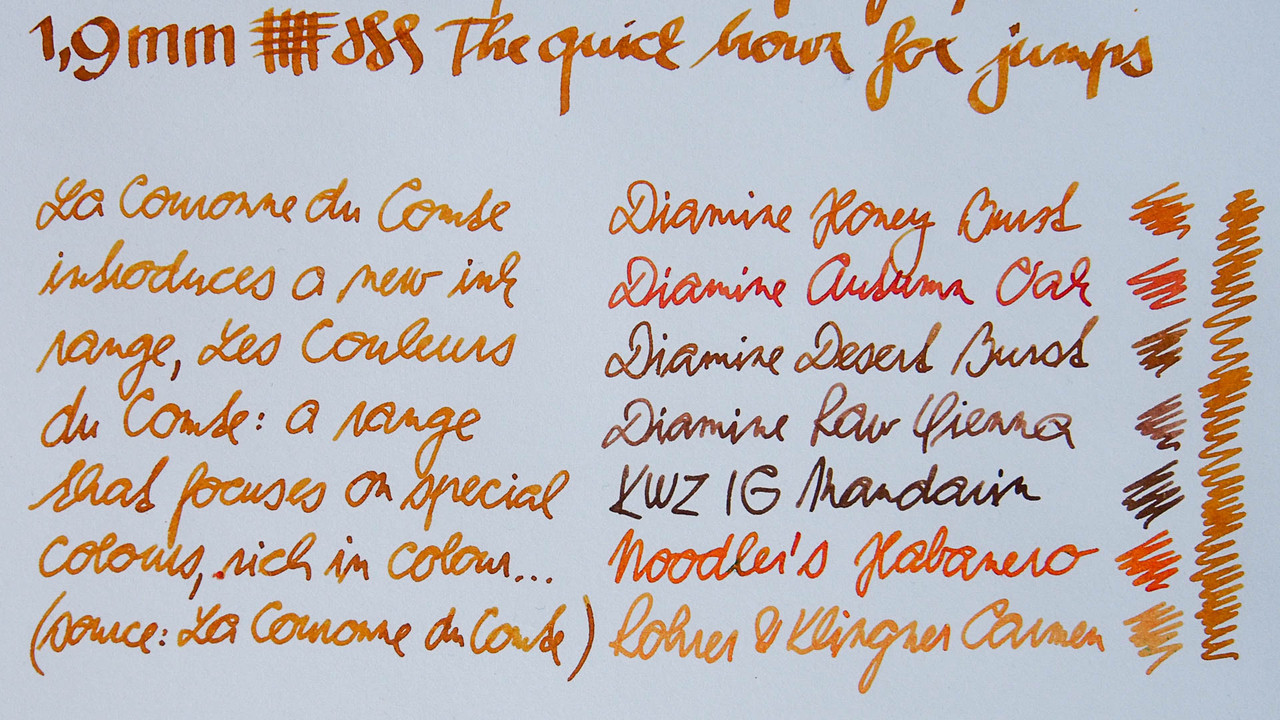 1,9mm The quick brown fox jumps
La Couronne du Comte
introduces a new ink
range, Les Couleurs
du Comte: a range
that focuses on special
colours, rich in colour...
(source: La Couronne du Comte)
Diamine Honey Burst
Diamine Autumn Oak
Diamine Desert Burst
Diamine Raw Sienna
KWZ IG Mandarin
Noodler's Habanero
Rohrer & Klingner Carmen